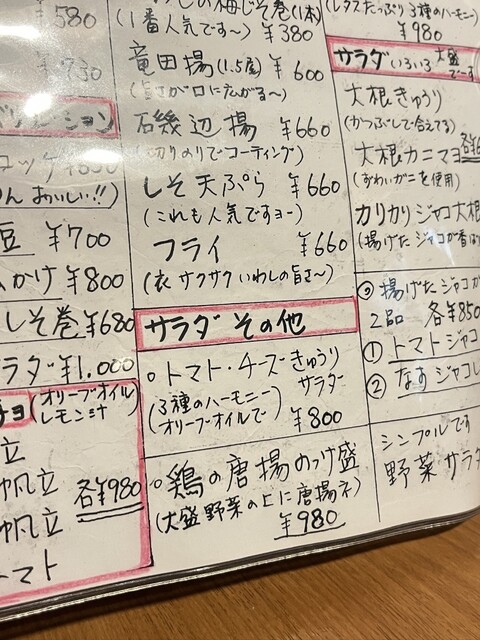 ¥580
¥730
¥830
おいしい!!)
豆 ¥700
かけ ¥800
しそ巻 ¥680
ラダ ¥1.000
(オリーブオイル
レモン汁)
立
帆立 各¥980
帆立
トマト
の梅じそ巻(1本)
(1番人気です〜) ¥380
竜田揚(1.5尾) ¥600
(旨さが口に広がる〜)
石磯辺揚 ¥660
(切りのりでコーティング)
しそ天ぷら ¥660
(これも人気ですヨー)
フライ ¥660
(衣サクサクいわしの旨さ〜)
サラダ その他
○トマト・チーズきゅうり
サラダ
(3種のハーモニー
オリーブオイルで) ¥800
○鶏の唐揚のっけ盛
(大盛野菜の上に唐揚ネ)
¥980
(レタスたっぷり3種のハーモニー)
¥980
サラダいろいろ 大盛でーす
大根きゅうり
(かつぶしで合えてる)
大根カニマヨ 各¥6
(ずわいガニを使用)
カリカリジャコ大根
(揚げたジャコが香ば
◎揚げたジャコが
2品 各¥850
① トマトジャコ
② なすジャコレ
シンプルです
野菜サラダ